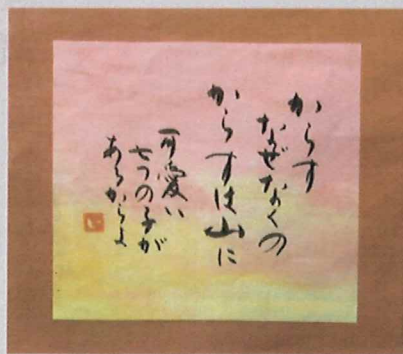 からす
なぜなくの
からすは山に
可愛い
七つの子が
あるからよ
い